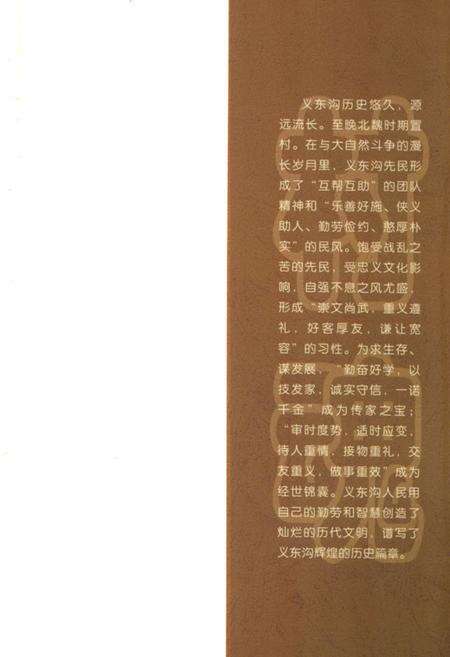 义东沟历史悠久，源
远流长。至晚北魏时期置
村。在与大自然斗争的漫
长岁月里，义东沟先民形
成了“互帮互助”的团队
精神和“乐善好施、侠义
助人、勤劳俭约、憨厚朴
实”的民风。饱受战乱之
苦的先民，受忠义文化影
响，自强不息之风尤盛，
形成“崇文尚武，重义遵
礼，好客厚友，谦让宽
容”的习性。为求生存、
谋发展，“勤奋好学，以
技发家，诚实守信，一诺
千金”成为传家之宝；
“审时度势，适时应变，
待人重情，接物重礼，交
友重义，做事重效”成为
经世锦囊。义东沟人民用
自己的勤劳和智慧创造了
灿烂的历代文明，谱写了
义东沟辉煌的历史篇章。